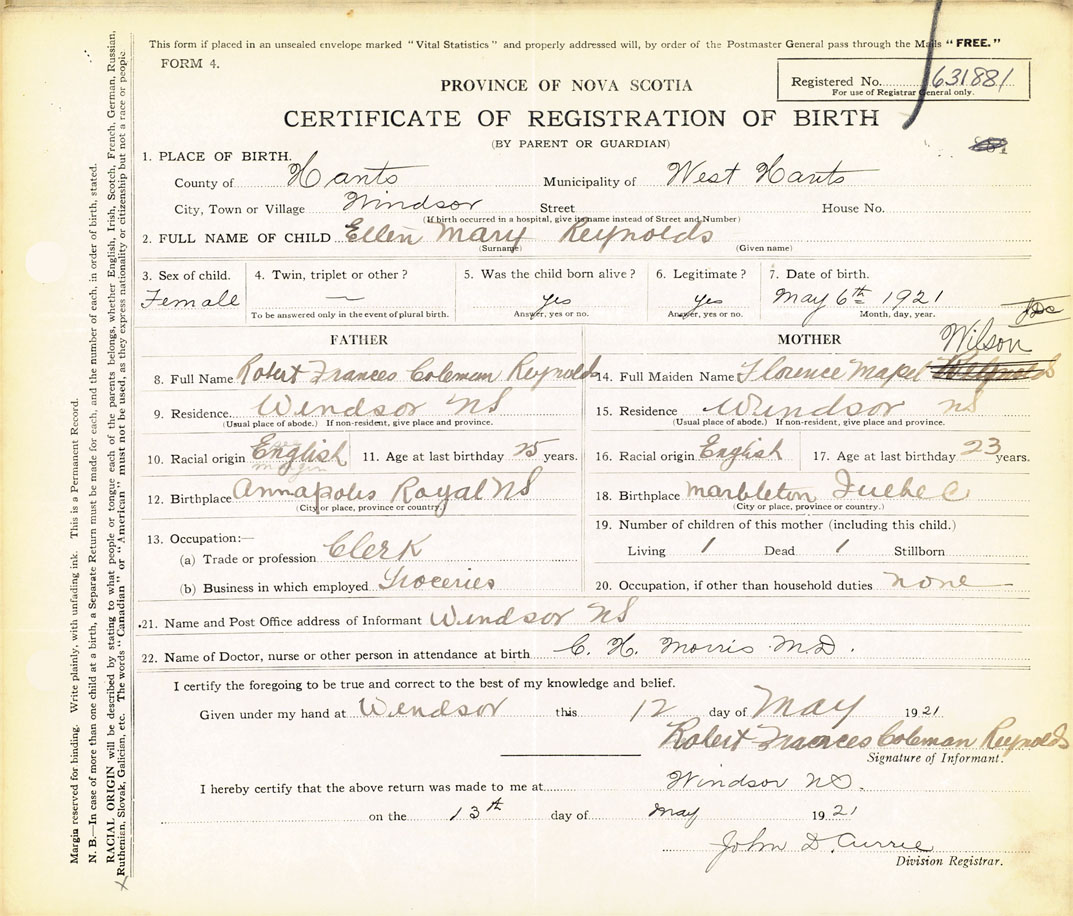 This form if placed in an unsealed envelope marked "Vital Statistics" and properly addressed will, by order of the Postmaster General pass through the Mails "FREE."
FORM 4.
Registered No. 631881
For use of Registrar General only.
PROVINCE OF NOVA SCOTIA
CERTIFICATE OF REGISTRATION OF BIRTH
(BY PARENT OR GUARDIAN)
1. PLACE OF BIRTH.
County of Hants Municipality of West Hants
City, Town or Village Windsor Street House No.
(If birth occurred in a hospital, give its name instead of Street and Number)
2. FULL NAME OF CHILD Ellen Mary Reynolds
(Surname) (Given name)
3. Sex of child. 4. Twin, triplet or other? 5. Was the child born alive? 6. Legitimate? 7. Date of birth.
Female — yes yes May 6th 1921
To be answered only in the event of plural birth. Answer, yes or no. Answer, yes or no. Month, day, year.
FATHER MOTHER
Wilson
8. Full Name Robert Frances Coleman Reynolds 14. Full Maiden Name Florence Mapel
9. Residence Windsor NS 15. Residence Windsor NS
(Usual place of abode.) If non-resident, give place and province. (Usual place of abode.) If non-resident, give place and province.
10. Racial origin English see margin 11. Age at last birthday 25 years. 16. Racial origin English 17. Age at last birthday 23 years.
12. Birthplace Annapolis Royal NS 18. Birthplace Marbleton Quebec
(City or place, province or country.) (City or place, province or country.)
19. Number of children of this mother (including this child.)
13. Occupation:—
(a) Trade or profession Clerk Living 1 Dead 1 Stillborn
(b) Business in which employed Groceries 20. Occupation, if other than household duties none
21. Name and Post Office address of Informant Windsor NS
22. Name of Doctor, nurse or other person in attendance at birth C. H. Morris M.D.
I certify the foregoing to be true and correct to the best of my knowledge and belief.
Given under my hand at Windsor this 12 day of May 1921
Robert Frances Coleman Reynolds
Signature of Informant.
I hereby certify that the above return was made to me at Windsor NS.
on the 13th day of May 1921
John D. Currie
Division Registrar.
Margin reserved for binding. Write plainly, with unfading ink. This is a Permanent Record.
N. B.—In case of more than one child at a birth, a Separate Return must be made for each, and the number of each, in order of birth, stated.
RACIAL ORIGIN will be described by stating to what people or tongue each of the parents belongs, whether English, Irish, Scotch, French, German, Russian,
Ruthenian, Slovak, Galician, etc. The words "Canadian" or "American" must not be used, as they express nationality or citizenship but not a race or people